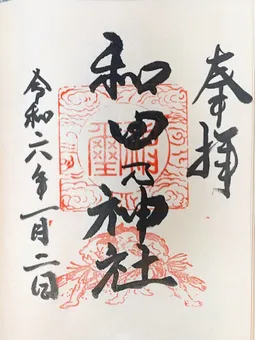 奉拝
和田乃神社
令和六年一月二日